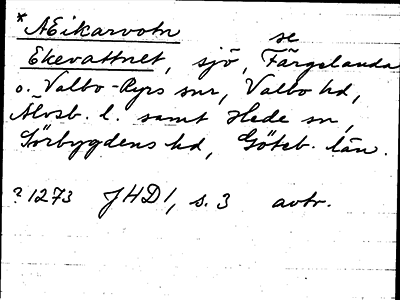 *AEikarvotn
se
Ekevattnet, sjö, Färgelanda
o. Valbo-Ryrs snr, Valbo hd,
Älvsb. l. samt Hede sn,
Sörbygdens hd, Göteb. län.
? 1273 JHD 1, s. 3 avtr.